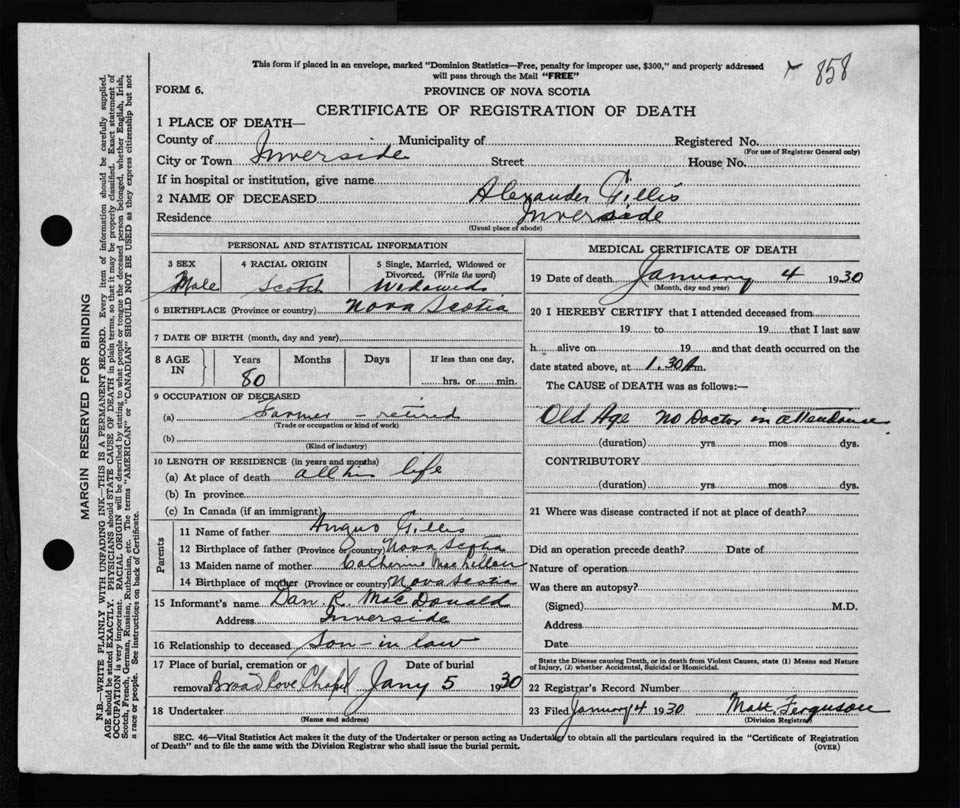 This form if placed in an envelope, marked "Dominion Statistics—Free, penalty for improper use, $300," and properly addressed
will pass through the Mail "FREE"
858
FORM 6.
PROVINCE OF NOVA SCOTIA
CERTIFICATE OF REGISTRATION OF DEATH
1 PLACE OF DEATH—
County of Municipality of Registered No.
(For use of Registrar General only)
City or Town Inverside Street House No.
If in hospital or institution, give name
2 NAME OF DECEASED Alexander Gillis
Residence Inverside
(Usual place of abode)
PERSONAL AND STATISTICAL INFORMATION
3 SEX Male
4 RACIAL ORIGIN Scotch
5 Single, Married, Widowed or
Divorced. (Write the word)
Widowed
6 BIRTHPLACE (Province or country) Nova Scotia
7 DATE OF BIRTH (month, day and year)
8 AGE IN
Years Months Days If less than one day,
80 hrs. or min.
9 OCCUPATION OF DECEASED
(a) Farmer – retired
(Trade or occupation or kind of work)
(b)
(Kind of industry)
10 LENGTH OF RESIDENCE (in years and months)
(a) At place of death all his life
(b) In province
(c) In Canada (if an immigrant)
Parents
11 Name of father Angus Gillis
12 Birthplace of father (Province or country) Nova Scotia
13 Maiden name of mother Catherine MacLellan
14 Birthplace of mother (Province or country) Nova Scotia
15 Informant's name Dan. R. MacDonald
Address Inverside
16 Relationship to deceased Son-in law
17 Place of burial, cremation or Date of burial
removal Broad Cove Chapel Jany 5 1930
18 Undertaker
(Name and address)
MEDICAL CERTIFICATE OF DEATH
19 Date of death January 4 1930
(Month, day and year)
20 I HEREBY CERTIFY that I attended deceased from
19 to 19 that I last saw
h alive on 19 and that death occurred on the
date stated above, at 1.30 A m.
The CAUSE of DEATH was as follows:—
Old Age No Doctor in attendance
(duration) yrs. mos. dys.
CONTRIBUTORY
(duration) yrs. mos. dys.
21 Where was disease contracted if not at place of death?
Did an operation precede death? Date of
Nature of operation
Was there an autopsy?
(Signed) M.D.
Address
Date
State the Disease causing Death, or in death from Violent Causes, state (1) Means and Nature
of Injury, (2) whether Accidental, Suicidal or Homicidal.
22 Registrar's Record Number
23 Filed January 4 1930 Matt. Ferguson
(Division Registrar)
SEC. 46—Vital Statistics Act makes it the duty of the Undertaker or person acting as Undertaker to obtain all the particulars required in the "Certificate of Registration
of Death" and to file the same with the Division Registrar who shall issue the burial permit.
(OVER)
MARGIN RESERVED FOR BINDING
N.B.—WRITE PLAINLY WITH UNFADING INK—THIS IS A PERMANENT RECORD. Every item of information should be carefully supplied.
AGE should be stated EXACTLY. PHYSICIANS should STATE CAUSE OF DEATH in plain terms, so that it may be properly classified. Exact statement of
OCCUPATION is very important. RACIAL ORIGIN will be described by stating to what people or tongue the deceased person belonged, whether English, Irish,
Scotch, French, German, Russian, Ruthenian, etc. The terms "AMERICAN" or "CANADIAN" SHOULD NOT BE USED as they express citizenship but not
a race or people. See instructions on back of Certificate.